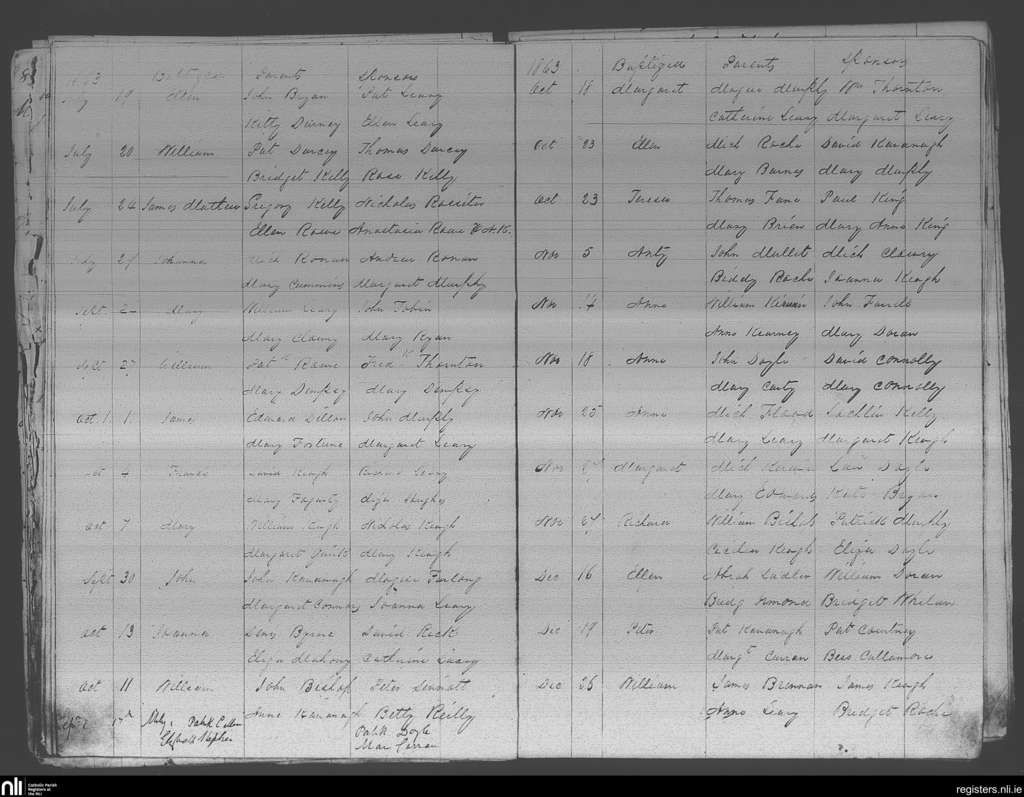 1863 Baptized Parents Sponsors
July 19 Ellen John Bryan Pat Leary
Kitty Darney Ellen Leary
July 20 William Pat Darcey Thomas Darcey
Bridget Kelly Rose Kelly
July 24 James Mathew Gregory Kelly Nicholas Rositer
Ellen Rowe Anastasia Rowe
July 27 Johanna Mick Ronan Andrew Ronan
Mary Cummins Margaret Murphy
Sept Mary William Leary John Tobin
Mary Clowry Mary Ryan
Sept 27 William Pat Rowe Thornton
Mary Dempsey Mary Dempsey
Oct. 1. James Edward Dillon John Murphy
Mary Fortune Margaret Leary
Oct 4 David Keogh Leary
Mary Fogarty Hughes
Oct 7 Mary William Keogh Nicholas Keogh
Margaret Quirk Mary Keogh
Sept 30 John John Kavanagh Mogue Furlong
Margaret Connor Joanna Leary
Oct 13 Joanna Byrne David Rock
Eliza Mahony Catherine Leary
Oct 11 William John Bishop Peter Sinnott
Anne Kavanagh Betty Reilly
17th Patk Cullen Patk Doyle
Mar Curran
1863 Baptized Parents Sponsors
Oct 18 Margaret Mogue Murphy Wm Thornton
Catherine Leary Margaret Leary
Oct 23 Ellen Mich Roche David Kavanagh
Mary Barnes Mary Murphy
Oct 23 Teresa Thomas Fane Paul King
Mary Brien Mary Anne King
Nov 5 Anty John Mullet Mich Clowry
Biddy Roche Joanna Keogh
Nov 14 Anne William John
Anne Kearney Mary Doran
Nov 18 Anne John Doyle David Connolly
Mary Carty Mary Connolly
Nov 25 Anne Mich Flood Lachlin Kelly
Mary Leary Margaret Keogh
Nov 27 Margaret Mich Doyle
Mary Kate Bryan
Nov 27 Richard William Bishop Patrick Murphy
Cecelia Keogh Eliza Doyle
Dec 16 Ellen William Doran
Bridg Ormond Bridget Whelan
Dec 19 Peter Pat Kavanagh Pat Courtney
Margt Curran Bess Cullamore
Dec 25 William James Brennan James Keogh
Anne Leary Bridget Roche
nli Catholic Parish
Registers at
the NLI
registers.nli.ie